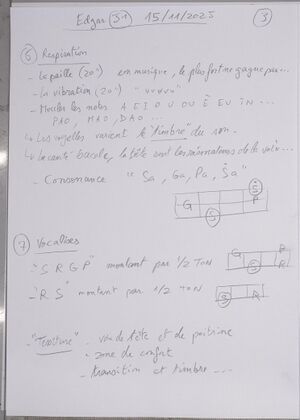 Edgar S1 15/11/2025 3
6 Respiration
- La paille (20") en musique, le plus fort ne gagne pas...
- La vibration (20") "vvvvv"
- Meubler les notes A E I O U OU È EU IN ...
PAO, MAO, DAO ...
↳ Les voyelles varient le "timbre" du son.
↳ La cavité buccale, la tête sont les résonateurs de la voix...
- Consonance "Sa, Ga, Pa, Ṡa"
Ṡ
G P
S
7 Vocalises
- "S R G P" montant par 1/2 Ton
G P
S R
- "R S" montant par 1/2 TON
S R
- "Tessiture" - voix de tête et de poitrine
- zone de confort
- transition et timbre ...